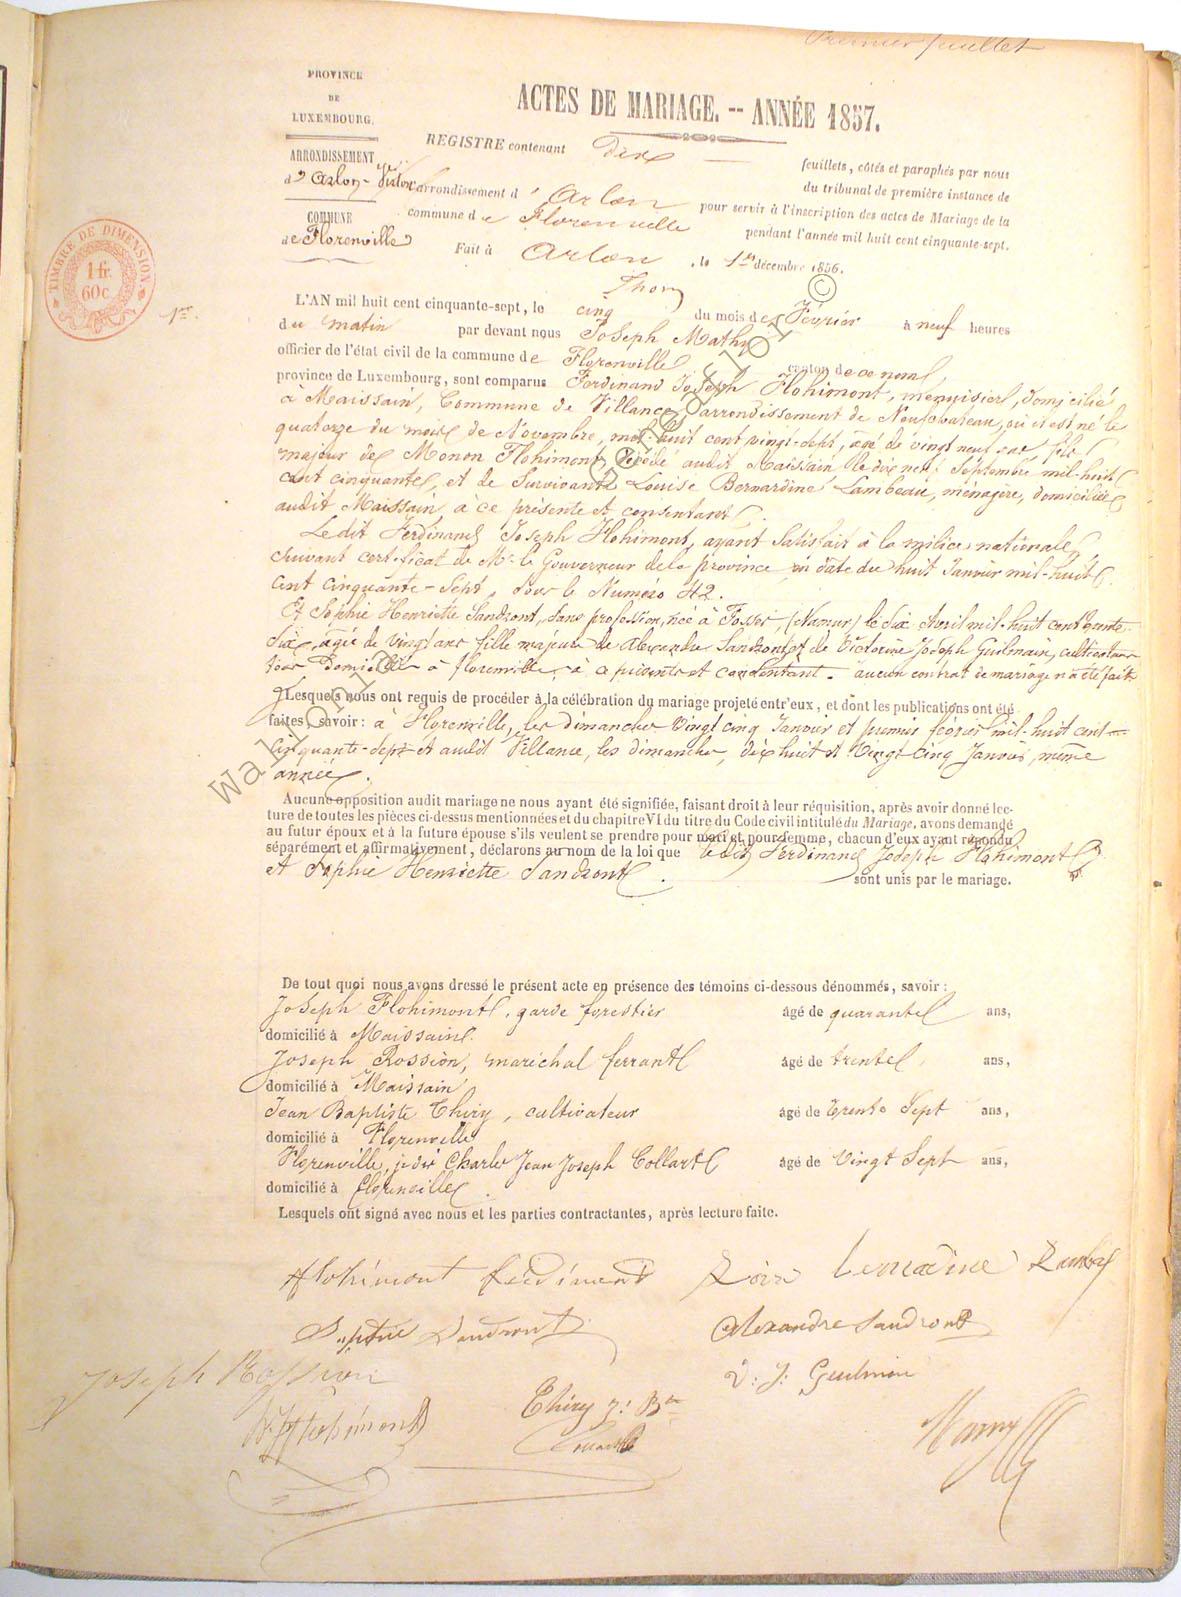 Premier feuillet
PROVINCE
DE
LUXEMBOURG.
ARRONDISSEMENT
d' Arlon - Virton
COMMUNE
de Florenville
TIMBRE DE DIMENSION
1 fr.
60c.
1er.
ACTES DE MARIAGE. -- ANNÉE 1857.
REGISTRE contenant dix feuillets, côtés et paraphés par nous
du tribunal de première instance de
l'arrondissement d' Arlon pour servir à l'inscription des actes de Mariage de la
commune de Florenville pendant l'année mil huit cent cinquante-sept.
Fait à Arlon, le 1er décembre 1856.
L'AN mil huit cent cinquante-sept, le cinq du mois de Février à neuf heures
du matin par devant nous Joseph Mathy
officier de l'état civil de la commune de Florenville canton de ce nom,
province de Luxembourg, sont comparus Ferdinand Joseph Flohimont, menuisier, domicilié
à Maissain, Commune de Villance, arrondissement de Neufchateau, où il est né le
quatorze du mois de Novembre, mil-huit cent vingt-sept, âgé de vingt neuf ans, fils
majeur de Monon Flohimont, décédé audit Maissain le dix neuf Septembre mil-huit
cent cinquante, et de Survivante Louise Bernardine Lambeau, ménagère, domiciliée
audit Maissain à ce présente et consentante.
Ledit Ferdinand Joseph Flohimont, ayant satisfait à la milice nationale,
suivant certificat de Mr. le Gouverneur de la province en date du huit Janvier mil-huit
cent cinquante-sept, sous le Numéro 42.
Et Sophie Henriette Sandront, sans profession, née à Fosses, (Namur) le six Avril mil-huit cent trente-
six, agée de vingt ans fille majeure de Alexandre Sandront et de Victorine Joseph Guilmain, cultivateurs
tous domiciliés à florenville, à ce présents et consentant. aucun contrat de mariage n'a été fait.
Lesquels nous ont requis de procéder à la célébration du mariage projeté entr'eux, et dont les publications ont été
faites, savoir: à Florenville, les dimanches vingt cinq Janvier et premier février mil-huit cent
cinquante-sept et audit Villance, les dimanches, dix huit et vingt cinq Janvier, même
année.
Aucune opposition audit mariage ne nous ayant été signifiée, faisant droit à leur réquisition, après avoir donné lec-
ture de toutes les pièces ci-dessus mentionnées et du chapitre VI du titre du Code civil intitulé du Mariage, avons demandé
au futur époux et à la future épouse s'ils veulent se prendre pour mari et pour femme, chacun d'eux ayant répondu
séparément et affirmativement, déclarons au nom de la loi que ledit Ferdinand Joseph Flohimont
et Sophie Henriette Sandront. sont unis par le mariage.
De tout quoi nous avons dressé le présent acte en présence des témoins ci-dessous dénommés, savoir:
Joseph Flohimont, garde forestier âgé de quarante ans,
domicilié à Maissain.
Joseph Rossion, maréchal ferrant âgé de trente ans,
domicilié à Maissain
Jean Baptiste Thiry, cultivateur âgé de trente Sept ans,
domicilié à Florenville
Florenville, Charles Jean Joseph Collart âgé de Vingt Sept ans,
domicilié à Florenville.
Lesquels ont signé avec nous et les parties contractantes, après lecture faite.
Flohimont Ferdinand
Sophie Sandront
Alexandre Sandront
Joseph Rossion
V: J: Guilmin
Thiry J: Bte
Flohimont